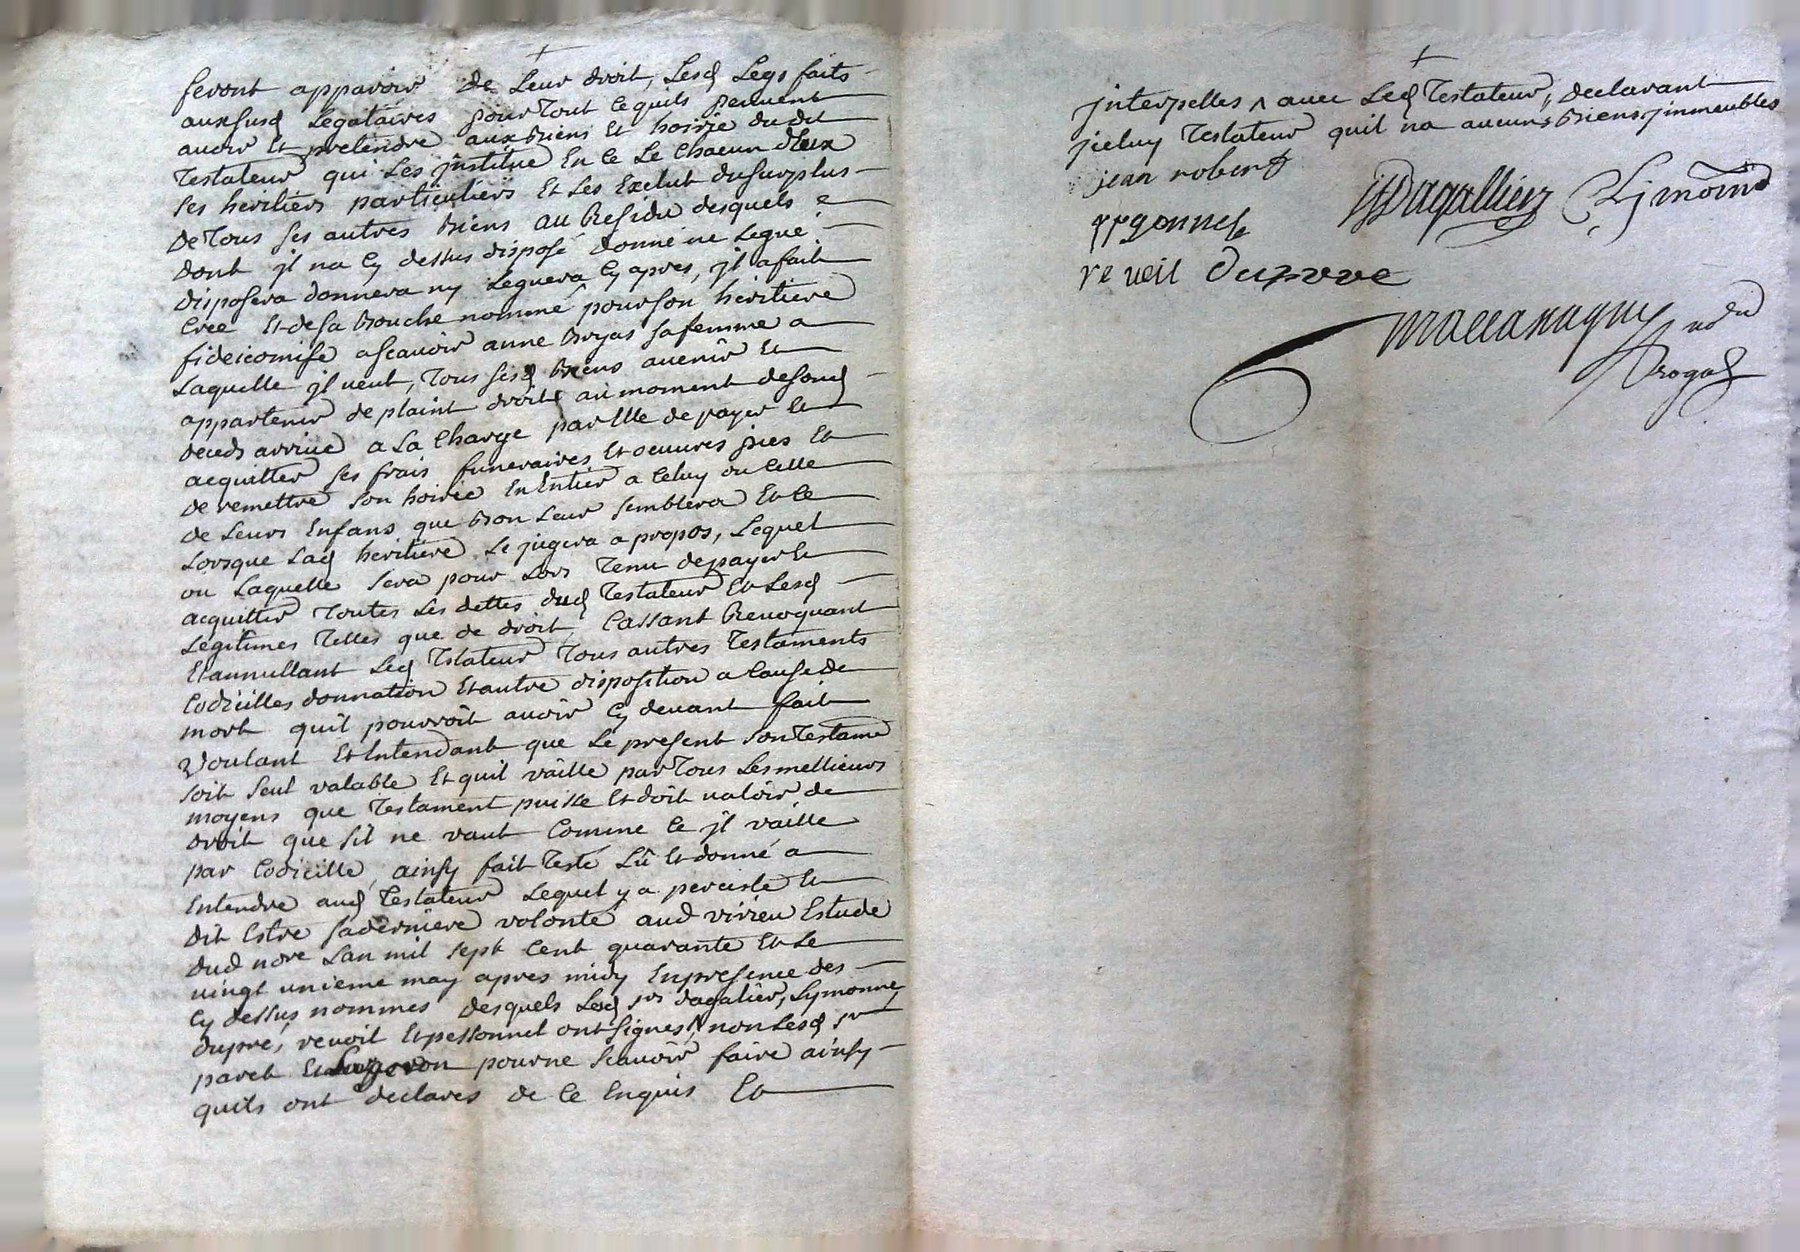 feront apparoir de Leur droit, Lesd Legs faits
auxsusd Legataires pour Tout ce quils peuuent
auoir Et pretendre aux biens Et hoirie du dit
Testateur qui Les jnstitue En ce Le Chacun d'Eux
ses heritiers particuliers Et Les Exclut du surplus
De Tous ses autres biens au Residu desquels &
dont jl na Cy dessus disposé donné ne Legué
disposera donnera ny Leguera Cy apres, jl a fait
Créé Et de sa bouche nommé pour son héritiere
fideicomise ascauoir anne broyas sa femme a
Laquelle jl ueut, Tous sesd biens auenir Et
appartenir de plaint droit au moment de soud
deceds arriué a La Charge par Elle de payer Et
acquitter ses frais funeraires, Et oeuures pies Et
de remettre son hoirie En Entier a Celuy ou Celle
de Leurs Enfans que bon Leur semblera Et Ce
Lorsque Lad heritiere Le jugera a propos, Lequel
ou Laquelle sera pour Lors Tenu de payer Et
acquitter Toutes Les dettes dud Testateur Et Lesd
Legitimes Telles que de droit, Cassant Reuoquant
Et annullant Led Tstateur Tous autres Testaments
Codicilles donnation Et autre disposition a Cause de
mort quil pourroit auoir Cy deuant fait
Voulant Et Entendant que Le present son Testame
soit seul valable Et quil vaille par Tous Les mellieurs
moyens que Testament puisse Et doit ualoir de
droit que sil ne vaut Comme Ce jl vaille
par Codicille, ainsy fait Testé Lû Et donné a
Entendre aud Testateur Lequel y a percisté Et
dit Estre sa derniere volonté aud virieu Estude
dud nore Lan mil sept Cent quarante Et Le
uingt unieme may apres midy En presence des
Cy dessus nommes desquels Lesd srs dagalier, Lymonne
dupré, reuoil Et pessonnel ont signes, non Lesd sr
paret Et pour ne Scauoir faire ainsy
quils ont declares de Ce Enquis Et
jnterpelles auec Led Testateur, declarant
jceluy Testateur quil na aucuns biens jmmeubles
jean robert
Dagallier Lymoine
reueil Duprre